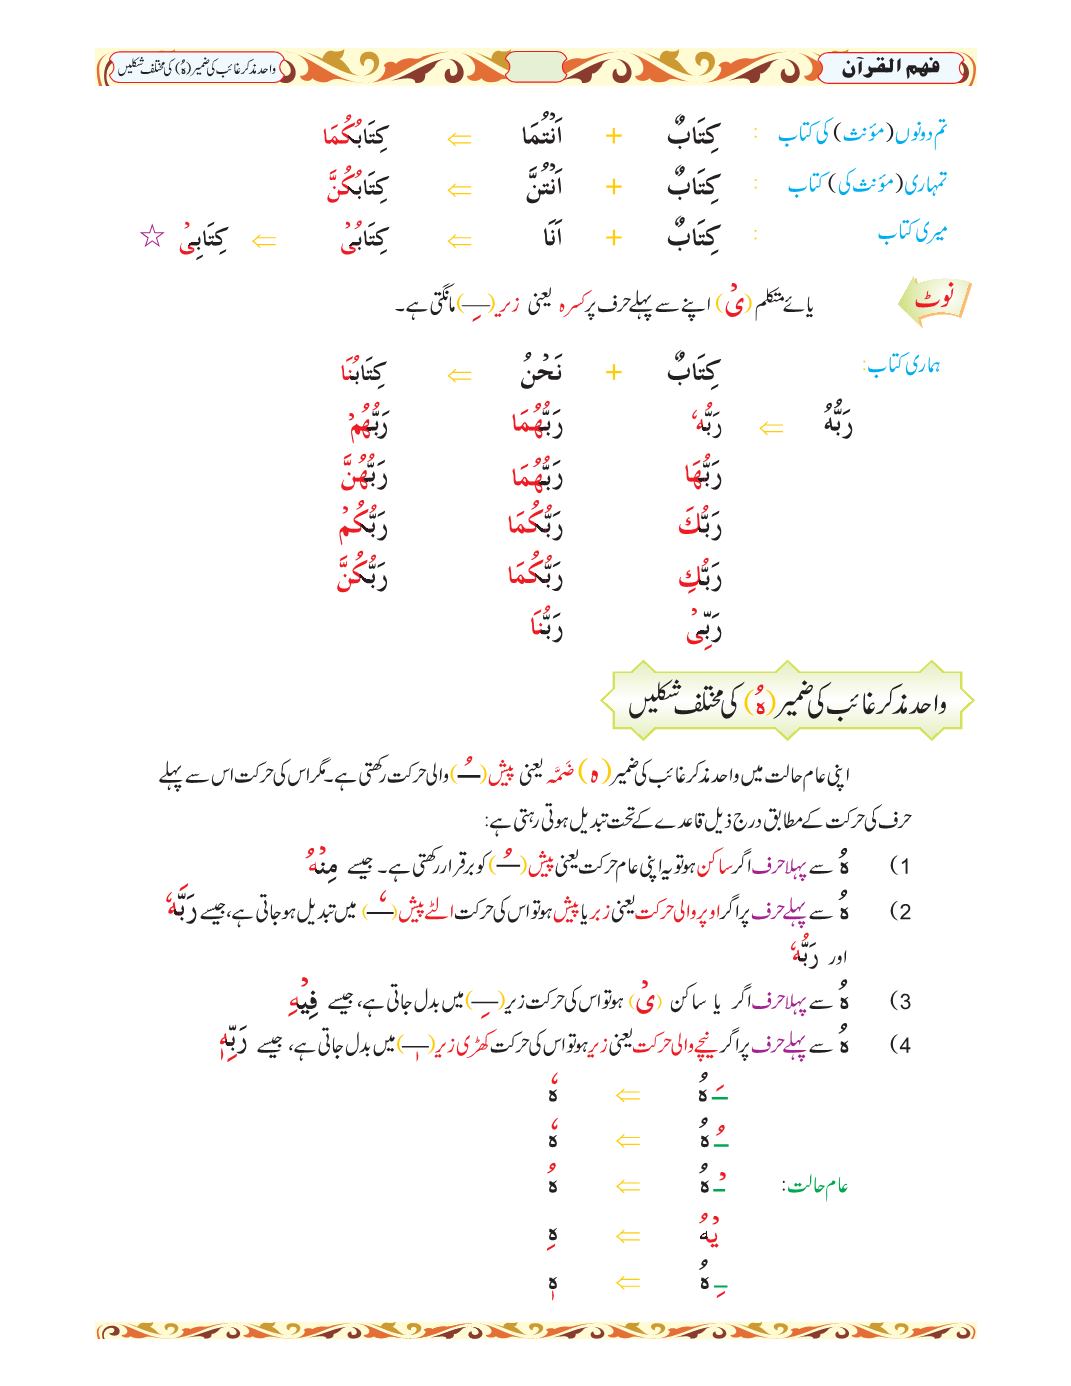 فهم القرآن
واحد مذکر غائب کی ضمیر (هُ) کی مختلف شکلیں
تم دونوں (مؤنث) کی کتاب : كِتَابٌ + اَنْتُمَا ⇐ كِتَابُكُمَا
تمہاری (مؤنث کی) کتاب : كِتَابٌ + اَنْتُنَّ ⇐ كِتَابُكُنَّ
میری کتاب : كِتَابٌ + اَنَا ⇐ كِتَابُیْ ⇐ كِتَابِیْ ☆
نوٹ یائے متکلم (یْ) اپنے سے پہلے حرف پر کسرہ یعنی زیر (ـِ) مانگتی ہے۔
ہماری کتاب: كِتَابٌ + نَحْنُ ⇐ كِتَابُنَا
رَبُّهُ ⇐ رَبُّهٗ رَبُّهُمَا رَبُّهُمْ
رَبُّهَا رَبُّهُمَا رَبُّهُنَّ
رَبُّكَ رَبُّكُمَا رَبُّكُمْ
رَبُّكِ رَبُّكُمَا رَبُّكُنَّ
رَبِّیْ رَبُّنَا
واحد مذکر غائب کی ضمیر (هُ) کی مختلف شکلیں
اپنی عام حالت میں واحد مذکر غائب کی ضمیر (ه) ضَمَّہ یعنی پیش (ـُ) والی حرکت رکھتی ہے۔ مگر اس کی حرکت اس سے پہلے
حرف کی حرکت کے مطابق درج ذیل قاعدے کے تحت تبدیل ہوتی رہتی ہے:
1) هُ سے پہلا حرف اگر ساکن ہو تو یہ اپنی عام حرکت یعنی پیش (ـُ) کو برقرار رکھتی ہے۔ جیسے مِنْهُ
2) هُ سے پہلے حرف پر اگر اوپر والی حرکت یعنی زبر یا پیش ہو تو اس کی حرکت الٹے پیش (ـٗ) میں تبدیل ہو جاتی ہے، جیسے رَبَّهٗ
اور رَبُّهٗ
3) هُ سے پہلا حرف اگر یا ساکن (یْ) ہو تو اس کی حرکت زیر (ـِ) میں بدل جاتی ہے، جیسے فِيْهِ
4) هُ سے پہلے حرف پر اگر نیچے والی حرکت یعنی زیر ہو تو اس کی حرکت کھڑی زیر (ـٖ) میں بدل جاتی ہے، جیسے رَبِّهٖ
ـَ هُ ⇐ هٗ
ـُ هُ ⇐ هٗ
عام حالت: ـْ هُ ⇐ هُ
يْهُ ⇐ هِ
ـِ هُ ⇐ هٖ